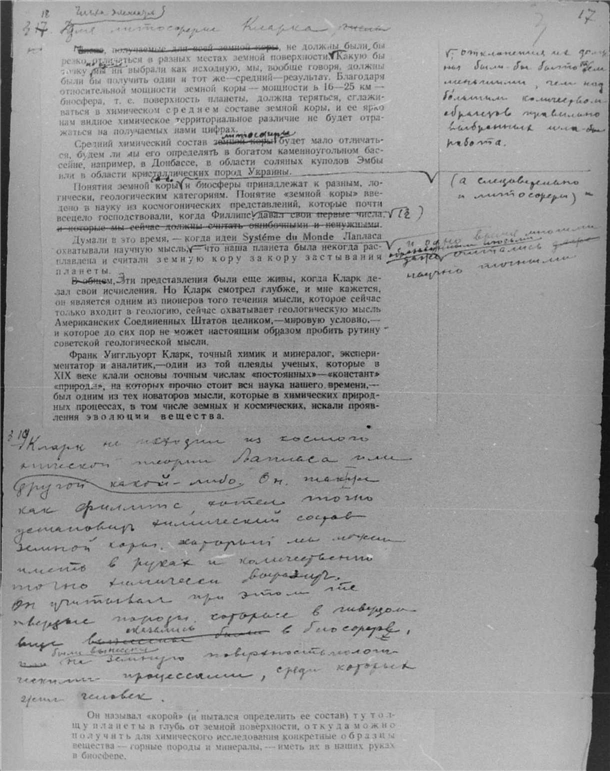 18 Числа элемента
37 Для литосферы Кларка числа
17
Числа, получаемые для всей земной коры, не должны были бы
резко отличаться в разных местах земной поверхности. Какую бы
точку мы ни выбрали как исходную, мы, вообще говоря, должны
были бы получить один и тот же—средний—результат. Благодаря
относительной мощности земной коры — мощность в 16—25 км —
биосфера, т. е. поверхность планеты, должна теряться, сглажи-
ваться в химическом среднем составе земной коры, и ее ярко
нам видное химическое территориальное различие не будет отра-
жаться на получаемых нами цифрах.
литосферы
Средний химический состав земной коры будет мало отличать-
ся, будем ли мы его определять в богатом каменноугольном бас-
сейне, например, в Донбассе, в области соляных куполов Эмбы
или в области кристаллических пород Украины.
Понятия земной коры и биосферы принадлежат к разным, ло-
гически, геологическим категориям. Понятие «земной коры» вве-
дено в науку из космогонических представлений, которые почти
всецело господствовали, когда Филлипс давал свои первые числа,
и которые мы сейчас должны считать ошибочными и ненужными.
Думали в это время, — когда идеи Systéme du Monde Лапласа
охватывали научную мысль, — что наша планета была некогда рас-
плавлена и считали земную кору за кору застывания
планеты.
В общем, Эти представления были еще живы, когда Кларк де-
лал свои исчисления. Но Кларк смотрел глубже, и мне кажется,
он является одним из пионеров того течения мысли, которое сейчас
только входит в геологию, сейчас охватывает геологическую мысль
Американских Соединенных Штатов целиком,—мировую условно,—
и которое до сих пор не может настоящим образом пробить рутину
советской геологической мысли.
Франк Уиггльуорт Кларк, точный химик и минералог, экспери-
ментатор и аналитик,—один из той плеяды ученых, которые в
XIX веке клали основы точным числам «постоянных»—«констант»
«природы», на которых прочно стоит вся наука нашего времени,—
был одним из тех новаторов мысли, которые в химических природ-
ных процессах, в том числе земных и космических, искали прояв-
ления эволюции вещества.
отклонения их долж
ны были бы быть
меньшими, чем над
большим количеством
образцов правильно
выбранных или
работа.
(а следовательно
и литосферы)
и одно время многими
считались
научно точными
§ 19 Кларк не исходил из космого
нической теории Лапласа или
другой какой-либо. Он, также
как Филлипс, хотел точно
установить химический состав
земной коры, который мы можем
иметь в руках и количественно
точно химически выразить.
Он учитывал при этом те
твердые породы, которые в твердом
виде оказались в биосфере,
были вынесены
на земную поверхность геологи
ческими процессами, среди которых
жил человек.
Он называл «корой» (и пытался определить ее состав) ту тол-
щу планеты в глубь от земной поверхности, откуда можно
получить для химического исследования конкретные образцы
вещества — горные породы и минералы, — иметь их в наших руках
в биосфере.